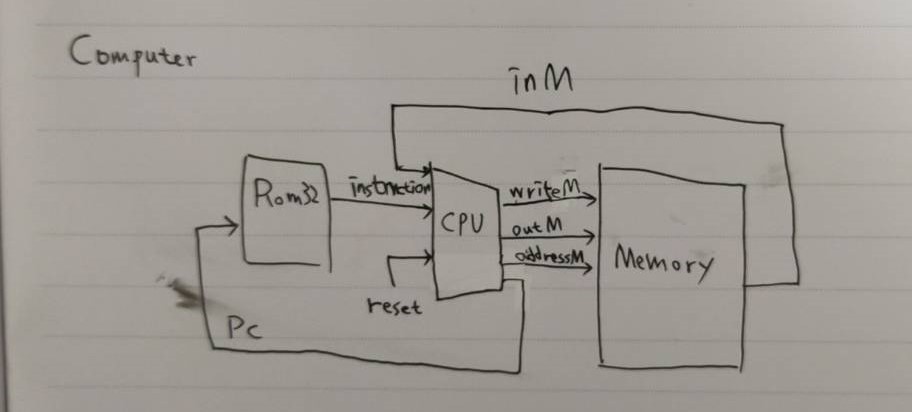 Computer
inM
Rom32
instruction
CPU
writeM
outM
addressM
Memory
reset
Pc